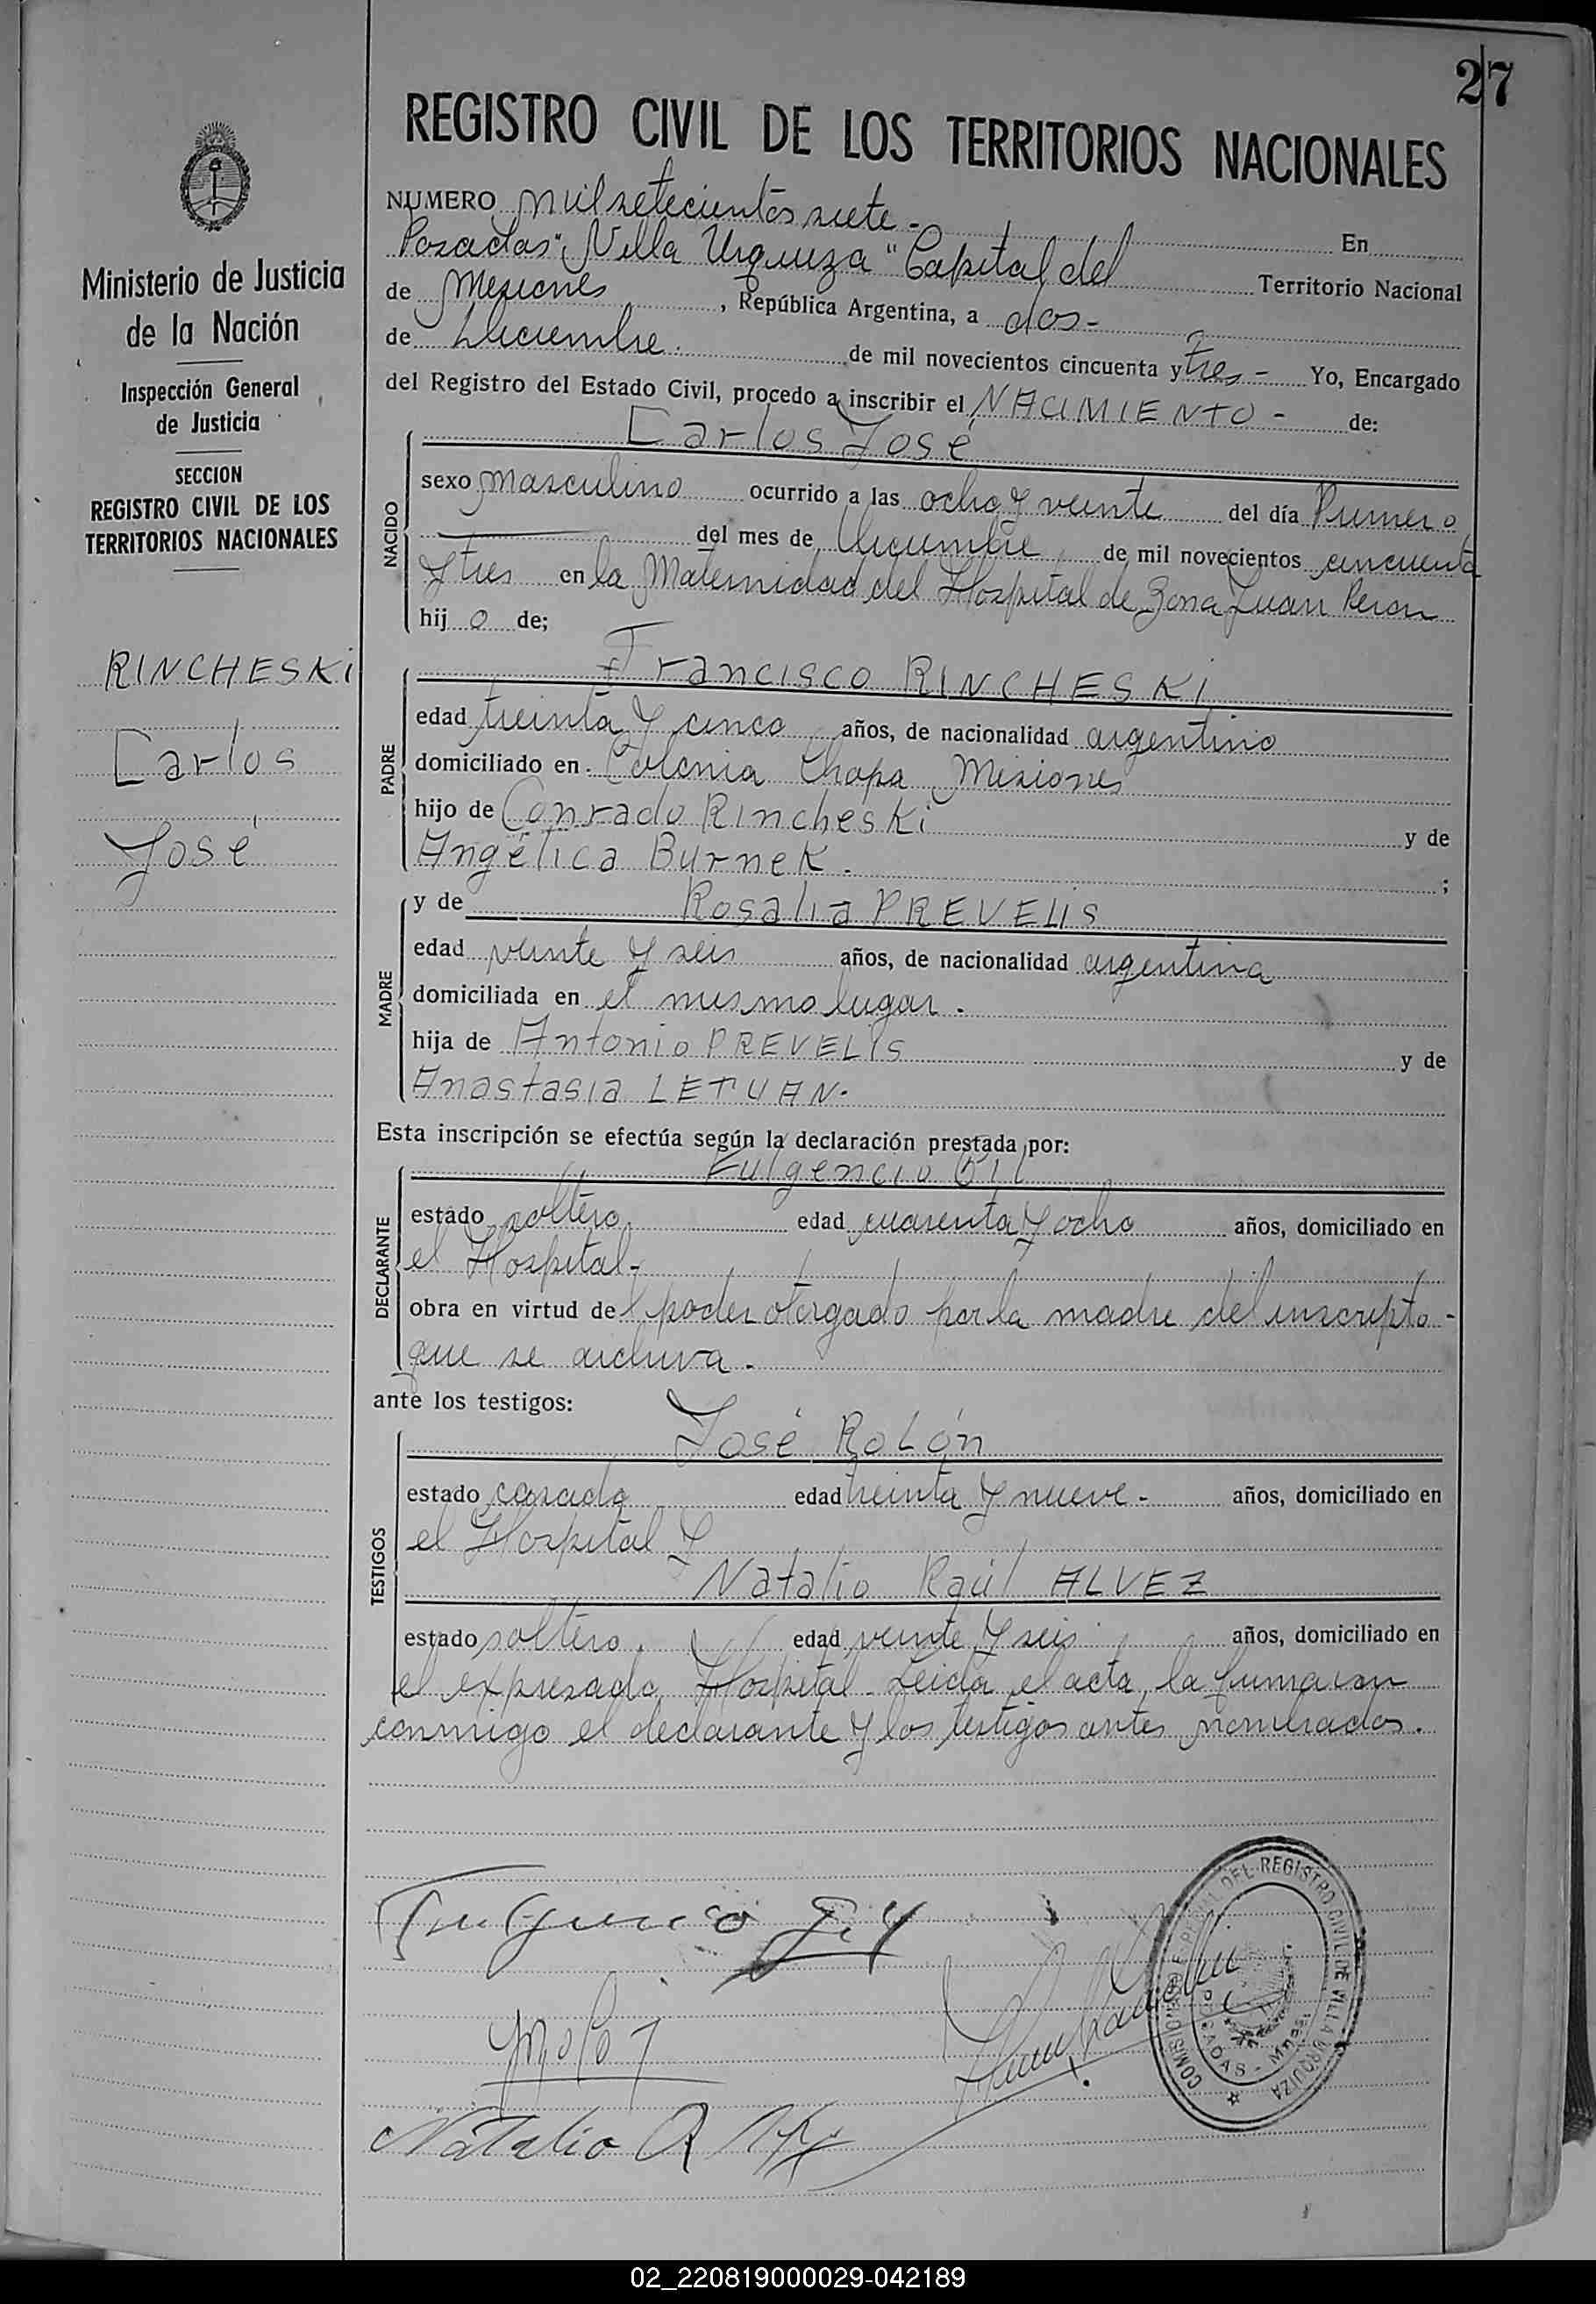 27
REGISTRO CIVIL DE LOS TERRITORIOS NACIONALES
Ministerio de Justicia
de la Nación
Inspección General
de Justicia
SECCION
REGISTRO CIVIL DE LOS
TERRITORIOS NACIONALES
RINCHESKI
Carlos
José
NUMERO mil setecientos siete - En
Posadas "Villa Urquiza" Capital del Territorio Nacional
de Misiones, República Argentina, a dos -
de Diciembre. de mil novecientos cincuenta y tres - Yo, Encargado
del Registro del Estado Civil, procedo a inscribir el NACIMIENTO - de:
NACIDO
Carlos José
sexo masculino ocurrido a las ocho y veinte del día Primero
del mes de Diciembre de mil novecientos cincuenta
y tres en la Maternidad del Hospital de Zona Juan Peron
hij o de;
PADRE
Francisco RINCHESKI
edad treinta y cinco años, de nacionalidad argentino
domiciliado en Colonia Chapa Misiones
hijo de Conrado Rincheski y de
Angélica Burnek. ;
MADRE
y de Rosalia PREVELIS
edad veinte y seis años, de nacionalidad argentina
domiciliada en el mismo lugar.
hija de Antonio PREVELIS y de
Anastasia LETUAN.
Esta inscripción se efectúa según la declaración prestada por:
DECLARANTE
Fulgencio Gil
estado soltero edad cuarenta y ocho años, domiciliado en
el Hospital -
obra en virtud del poder otorgado por la madre del inscripto -
que se archiva.
ante los testigos:
TESTIGOS
José ROLón
estado casado edad treinta y nueve - años, domiciliado en
el Hospital y
Natalio Raúl ALVEZ
estado soltero. edad veinte y seis años, domiciliado en
el expresado Hospital - Leida el acta, la firmaron
conmigo el declarante y los testigos antes nombrados.
Fulgencio Gil
Natalio R
DEL REGISTRO CIVIL DE VILLA URQUIZA
POSADAS - Mnes.
02_220819000029-042189